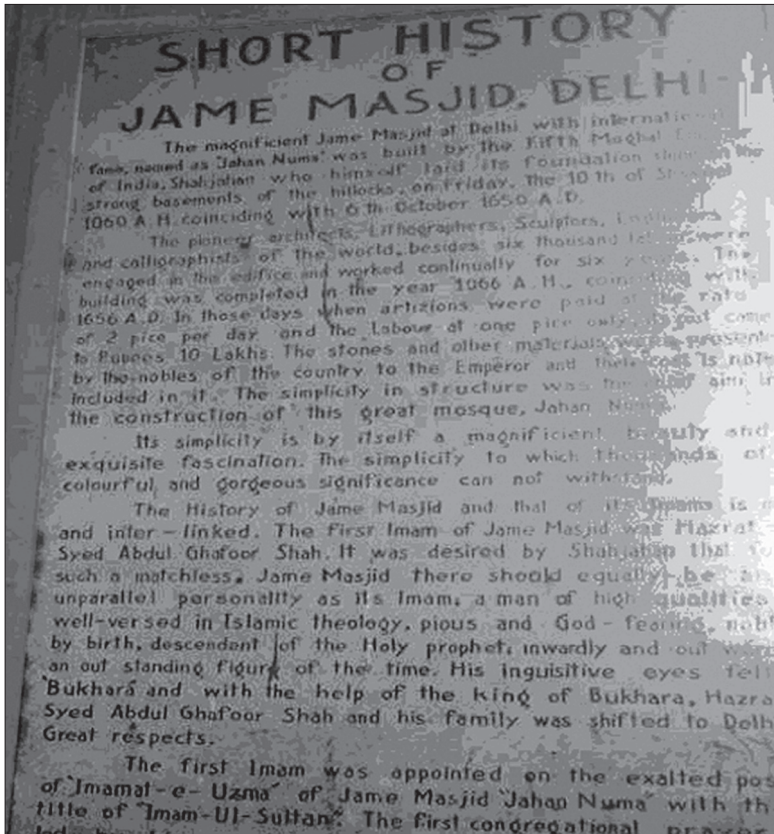 SHORT HISTORY
OF
JAME MASJID. DELHI-
The magnificient Jame Masjid at Delhi with
fame, named as 'Jahan Numa' was built by the Fifth Moghal
of India, Shahjahan who himself laid its foundation the
strong basements of the hillocks, on Friday. The 10 th of
1060 A.H. coinciding with 6 th October 1650 A.D.
The pioneer architects, Lithographers, Sculptors,
and calligraphists of the world, besides six thousand were
engaged in the edifice and worked continually for six The
building was completed in the year 1066 A.H., with
1656 A.D. In those days when artizions were paid at the rate
of 2 pice per day and the Labour at one pice only. cost came
to Rupees 10 Lakhs. The stones and other materials were present
by the nobles of the country to the Emperor and their cost is not
included in it. The simplicity in structure was the aim in
the construction of this great mosque, Jahan
Its simplicity is by itself a magnificient beauty and
exquisite fascination. The simplicity to which thousands of
colourful and gorgeous significance can not withstand.
The History of Jame Masjid and that of its Imams is
and inter-linked. The first Imam of Jame Masjid was Hazrat
Syed Abdul Ghafoor Shah. It was desired by Shahjahan that
such a matchless, Jame Masjid there should equally be an
unparallel personality as its Imam, a man of high qualities
well-versed in Islamic theology, pious and God-fearing,
by birth, descendent of the Holy prophet, inwardly and
an out standing figure of the time. His inguisitive eyes fell
'Bukhara and with the help of the king of Bukhara, Hazra
Syed Abdul Ghafoor Shah and his family was shifted to Delh
Great respects.
The first Imam was appointed on the exalted pos
of "Imamat-e-Uzma" of Jame Masjid 'Jahan Numa' with th
title of "Imam-Ul-Sultan". The first congregational